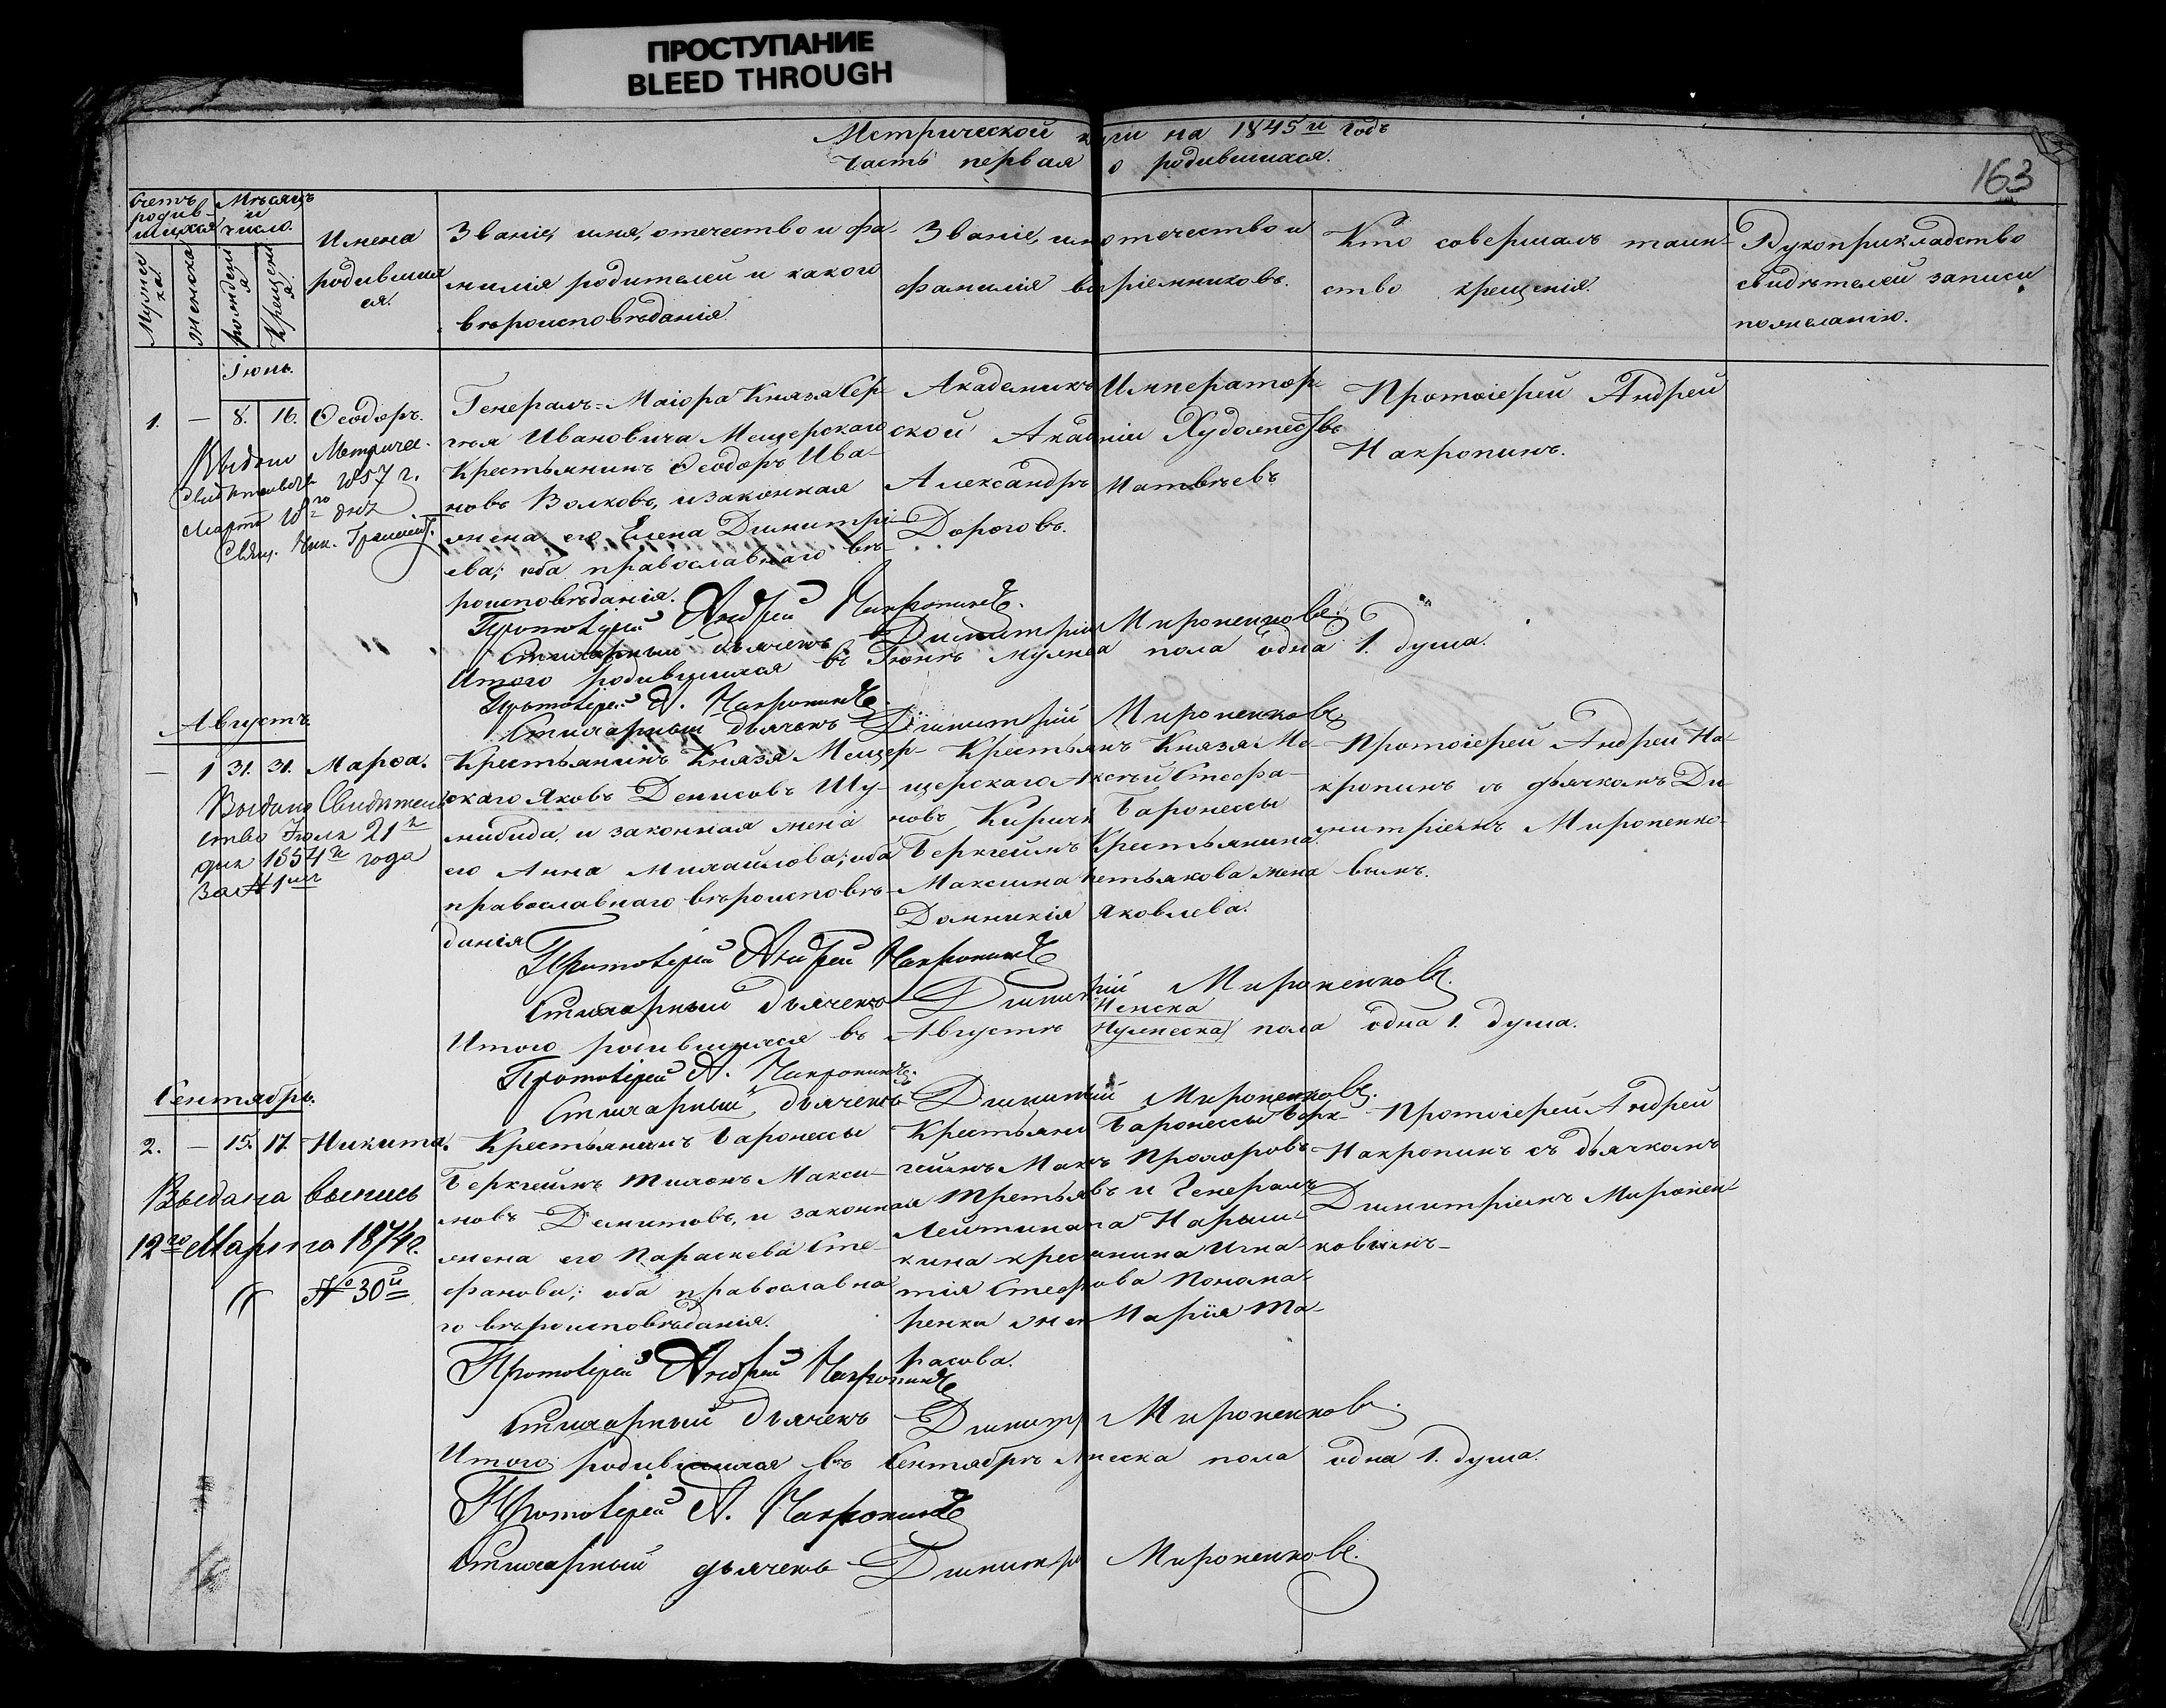 ПРОСТУПАНИЕ
BLEED THROUGH
Метрической книги на 1845й годъ
Часть первая о родившихся.
163
Счетъ родив-шихся
Мужеска.
Женска.
Мѣсяцъ и число.
рожденія
Крещенія.
Имена родившихся.
Званіе, имя, отечество и фа-
милія родителей и какого
вѣроисповѣданія.
Званіе, имя отечество и
фамилія воспріемниковъ.
Кто совершалъ таин-
ство крещенія.
Рукоприкладство
свидѣтелей записи
по желанію.
Іюнь.
1. — 8. 16. Ѳеодоръ.
Выдано Метричес.
1857 г.
Марта 10го дня
Свящ. Ник.
Генералъ-Маіора Князя Сер-
гѣя Ивановича Мещерскаго
Крестьянинъ Ѳеодоръ Ива-
новъ Волковъ, и законная
жена его Елена Димитрі-
ева; оба православнаго вѣ-
роисповѣданія.
Академикъ Император-
ской Академіи Художествъ
Александръ Матвѣевъ
Дороговъ.
Протоіерей Андрей
Накропинъ.
Протоіерей Андрей Накропинъ.
Стихарный дьячекъ Димитрій Мироненковъ.
Итого родившихся въ Іюнѣ мужеска пола одна 1. душа.
Протоіерей А. Накропинъ.
Стихарный дьячекъ Димитрій Мироненковъ
Августъ
— 1 31. 31. Марѳа.
Выдано Свидѣтель-
ство Іюля 21го
дня 1854го года
за № 1мъ
Крестьянинъ Князя Мещер-
скаго Яковъ Денисовъ Шу-
мибида, и законная жена
его Анна Михайлова; оба
православнаго вѣроисповѣ-
данія
Крестьянинъ Князя Ме-
щерскаго Алексѣй Стефа-
новъ Баронессы
Беркгеймъ Крестьянина
Максима Третьякова жена
Домникія Яковлева.
Протоіерей Андрей На-
кропинъ съ дьячкомъ Ди-
митріемъ Мироненко-
вымъ.
Протоіерей Андрей Накропинъ
Стихарный дьячекъ Димитрій Мироненковъ.
Женска
Итого родившихся въ Августѣ (Мужеска) пола одна 1. душа.
Протоіерей А. Накропинъ.
Стихарный дьячекъ Димитрій Мироненковъ.
Сентябрь.
2. — 15. 17. Никита.
Выдана выпись
12го Марта 1874 г.
№ 30й
Крестьянинъ Баронессы
Беркгеймъ Тихонъ Макси-
мовъ Демитовъ, и законная
жена его Параскева Сте-
фанова; оба православна-
го вѣроисповѣданія.
Крестьянинъ Баронессы Берк-
геймъ Максимъ Прохоровъ
Третьяковъ и Генералъ
Лейтинанта Нарыш-
кина крестьянина Игна-
тія Стефанова Понома-
ренка жена Марія Та-
расова.
Протоіерей Андрей
Накропинъ съ дьячкомъ
Димитріемъ Миронен-
ковымъ—
Протоіерей Андрей Накропинъ
Стихарный дьячекъ Димитрій Мироненковъ.
Итого родившихся въ Сентябрѣ мужеска пола одна 1. душа.
Протоіерей А. Накропинъ
Стихарный дьячекъ Димитрій Мироненковъ.